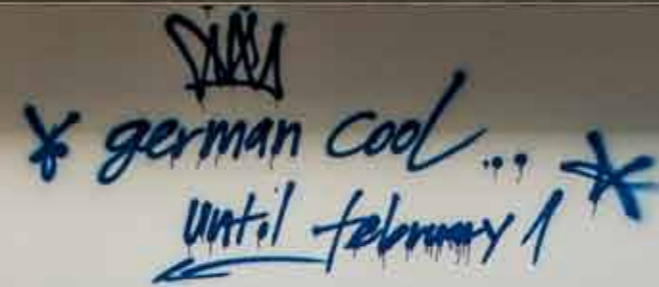 german cool...
until february 1